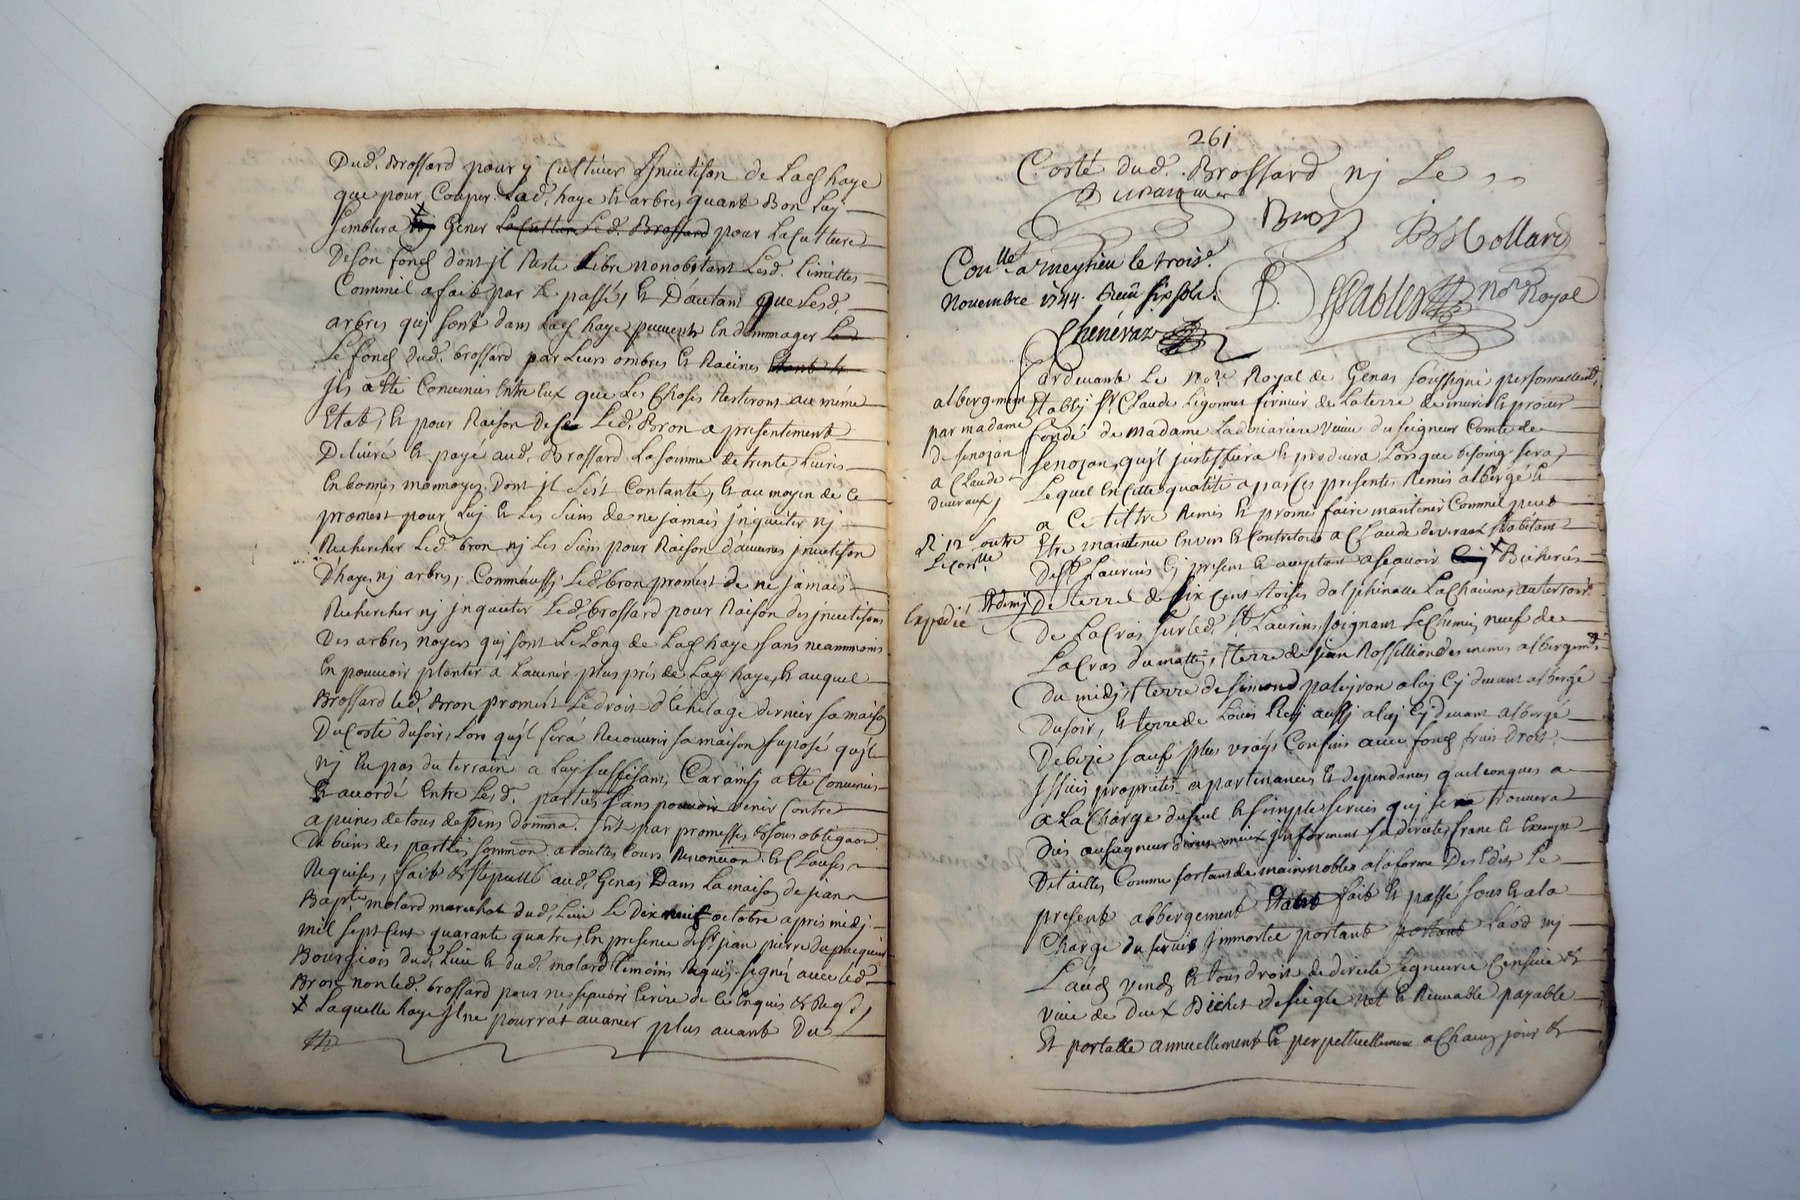 Dud. Brossard pour y Cultiver de Lad haye
que pour Couper Lad. haye & arbres quant Bon Luy
semblera Gener La Culture Led. Brossard pour La Culture
De son fond dont jl Reste Libre nonobstant Lesd. Limittes
Comme il a fait par Le passés, & D'autant que Lesd.
arbres quj sont dans Lad haye peuvent Endommager Led
Le fond dud. brossard par Leurs ombres & Racines
jls a êté Convenus Entre Eux que Les Choses Resteront au meme
Etat, & pour Raison de Ce Led. Bron a presentement
Delivré & payé aud. Brossard La somme de trente Livres
En bonnes monnoyes Dont jl s'est Contanté, & au moyen de ce
promest pour Luj & Les siens de ne jamais jnquieter nj
Rechercher Led. bron nj Les siens pour Raison d'aucunes
D'haye, nj arbres, Comm'aussy Led. bron promest de ne jamais
Rechercher nj jnquieter Led. brossard pour Raison des
Des arbres noyers quj sont Le Long de Lad haye sans neammoins
En pouvoir planter a L'avenir plus prés de Lad haye, & auquel
Brossard led. Bron promest Le droit d'Echelage dernier sa maison
Du Costé du soir, Lors qu'jl séra Recouvrir sa maison suposé qu'jl
nj Eu pas du terrain a Luy suffisant, Car ainsj a êté Convenus
& accordé Entre Lesd. parties sans pouvoir venir Contre
a peines de tous depens domma. Int par promesses & sous obligaon
De biens des parties sommon. a toittes Cours Renonciaon & Clauses
Requises, fait & stipullé aud. Genas Dans La maison de jean
Bapte molard marechal dud. Lieu Le dix neuf octobre apres midj
mil sept Cent quarante quatre, En presence de Sr jean pierre
Bourgeois dud. Lieu & dud. molard temoins Requis signéz avec led.
Bron non led. brossard pour ne sçavoir Ecrire de ce Enquis & Requis
+ Laquelle haye jl ne pourrat avancer plus avant Du
261
Costé dud. Brossard nj Le
Bron
JB Mollard
Conlle a meyzieu le troise.
Novembre 1744. Reçu six sols.
Chenévaz
Pables nore Royal
Pardevant Le Nore Royal de Genas soussigné personnellemt
albergement
par madame
de senozan
a Claude
deveraux
R 12 outre
Le Conlle
Expedié
Etablj Sr Claude Ligonnet firmier de La terre de &  procur
fondé de Madame Ladmariere veuve du seigneur Comte de
senozan, qu'jl justiffiera & produira Lorsque besoing sera
Lequel En Cette qualité a par Ces presentes Remis albergé &
a Ce tittre Remis & promes faire maintenir Comme peut
Etre maintenu Envers & Contre tous a Claude deveraux habitant
de St. Laurens Cj present & acceptant a scavoir Bicherées
& demj De terre de six Cent toises dalphinalle La Chacune, au terroir
De La Cras sur led. St. Laurens, joignant Le Chemin neuf de
La Cras du mattin, terre de jean Rossillion des mimes albergemt
du midj, terre de Simond paleyron a luj Cj devant albergé
Du soir, & terre de Louis Rey aussj a luj Cj devant albergé
De bize sauf plus vrays Confins avec fond fruis droit
Issuies proprietés apartenances & dependances quelconques a
a La Charge du seul & simple servis quj se trouvera
Du au seigneur direct mieux jnformant sa directe, franc & Exempt
De tailles Comme sortant de mains nobles a la forme Des Edits Le
present abbergement Etabt fait & passé sous & a la
Charge du servis jmmortée portant portant Laod mj
Laod, vends & tous droit de directe seigneurie Censive &
vieie de Deux Bichet de seigle net & Recevable payable
Et portable annuellement & perpettuellement a Chacuns jour &